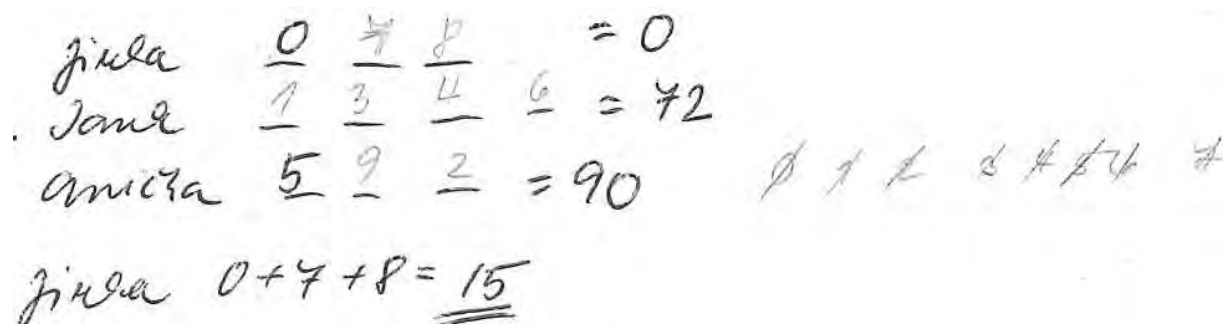 Jirka 0 7 8 = 0
Jana 1 3 4 6 = 72
Anička 5 9 2 = 90
0 1 2 3 4 5 6 7
Jirka 0+7+8=15